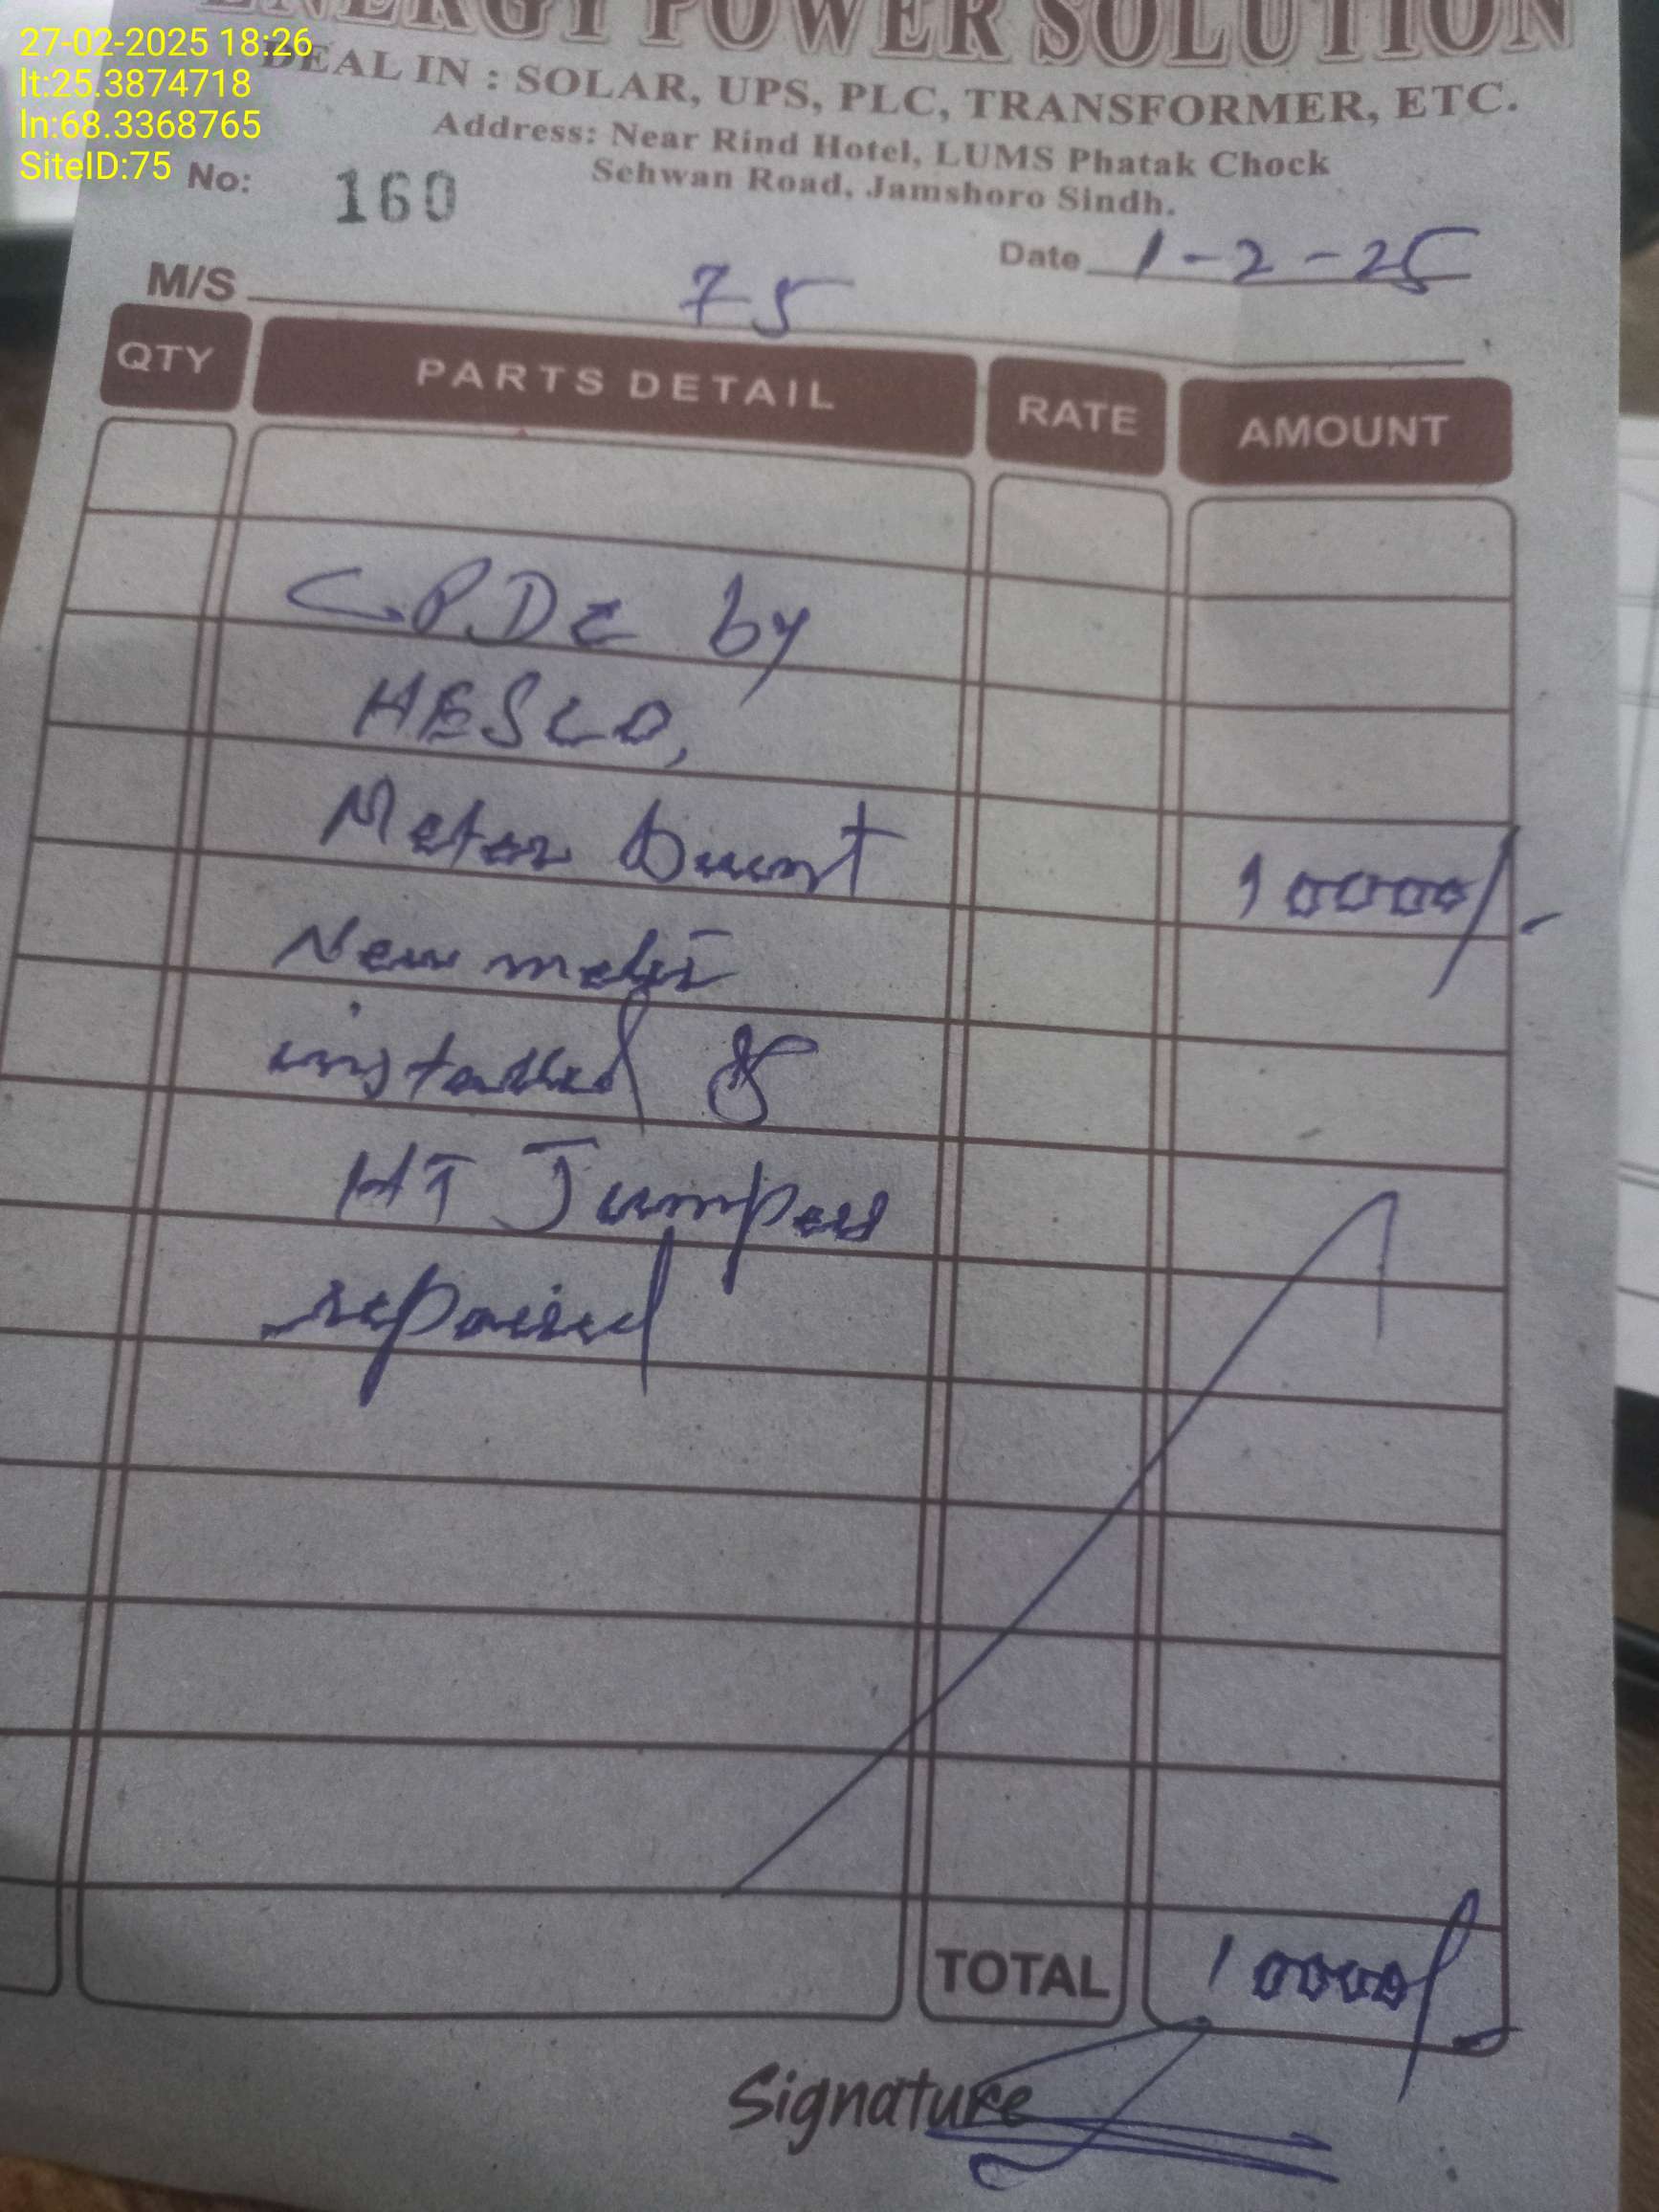 27-02-2025 18:26
lt:25.3874718
ln:68.3368765
SiteID:75
ENERGY POWER SOLUTION
DEAL IN : SOLAR, UPS, PLC, TRANSFORMER, ETC.
Address: Near Rind Hotel, LUMS Phatak Chock
Sehwan Road, Jamshoro Sindh.
No: 160
Date 1-2-25
M/S 75
QTY PARTS DETAIL RATE AMOUNT
by
HESCO,
Meter burnt 10000/-
New meter
installed &
HT Jumper
repaired
TOTAL 10000/-
Signature